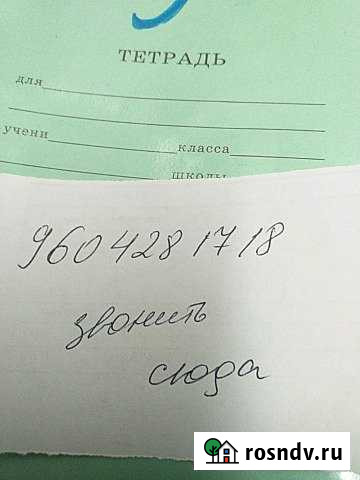 ТЕТРАДЬ
для
учени класса
школы
960 428 17 18
звонить
сюда
rosndv.ru